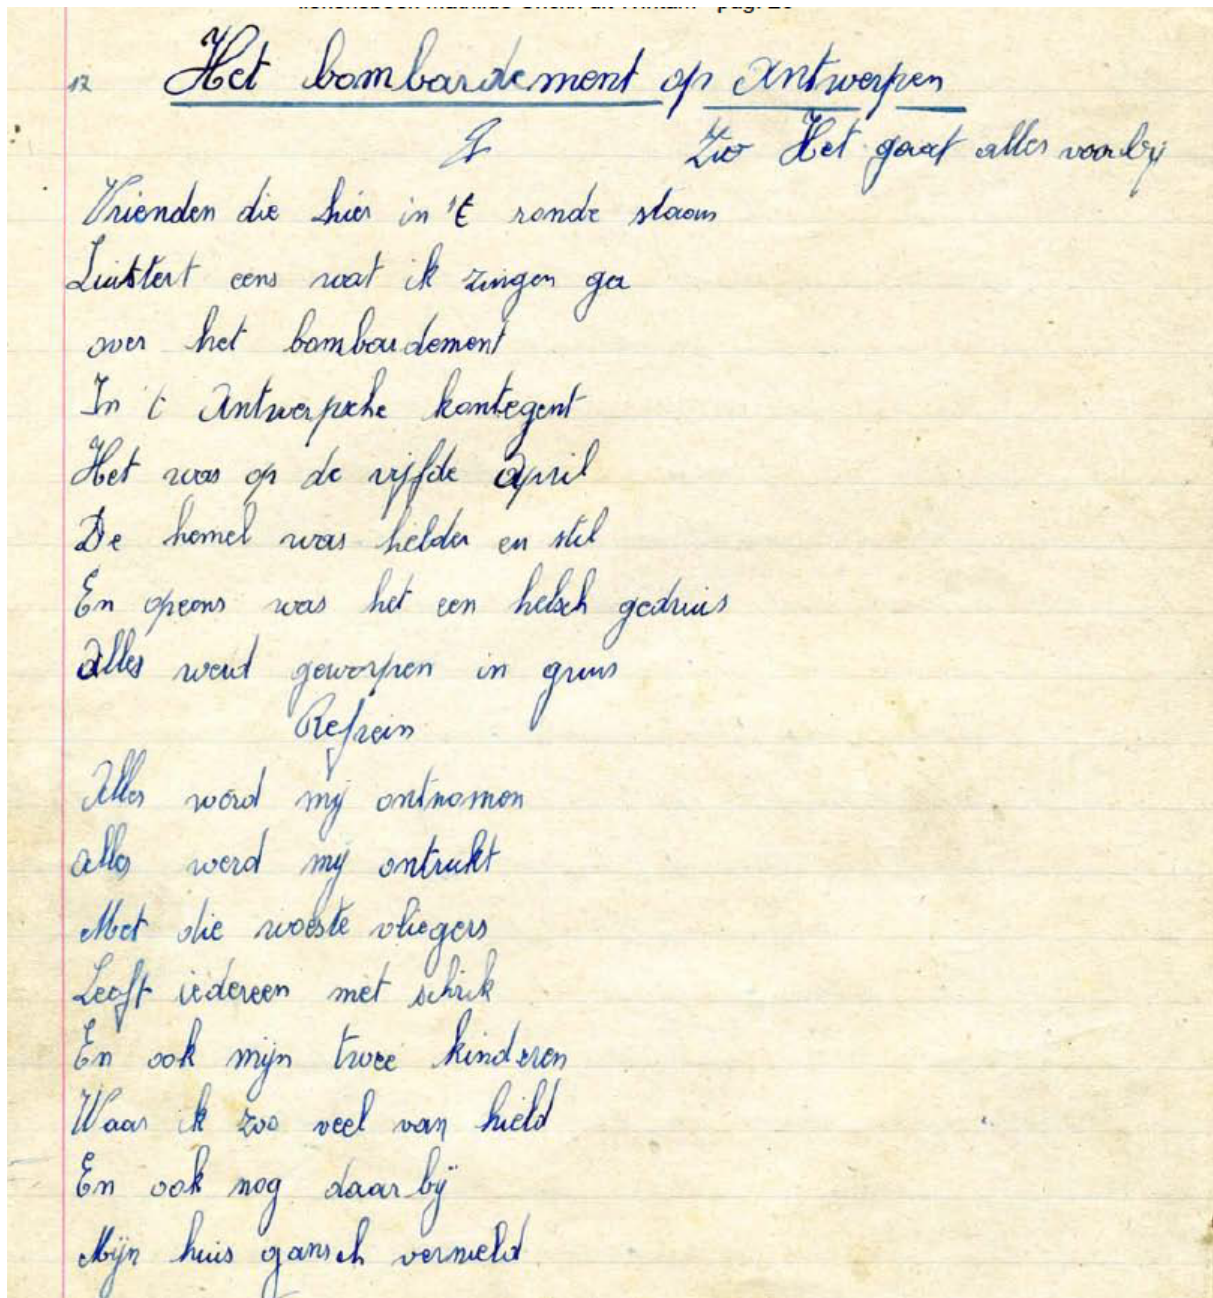 17 Het bombardement op Antwerpen
I Zw Het gaat alles voorbij
Vrienden die hier in 't ronde staan
Luistert eens wat ik zingen ga
over het bombardement
In 't Antwerpsche kontegent
Het was op de vijfde April
De hemel was helder en stil
En opeens was het een helsch gedruis
Alles werd geworpen in gruis
Refrein
Alles werd mij ontnomen
alles werd mij ontrukt
Met die woeste vliegers
Leeft iedereen met schrik
En ook mijn twee kinderen
Waar ik zoo veel van hield
En ook nog daar bij
Mijn huis gansch vernield